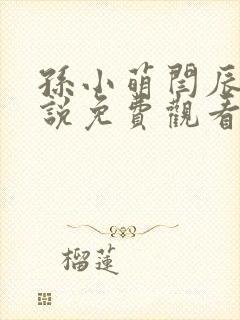 孫小萌閆辰
說免費觀看
榴蓮